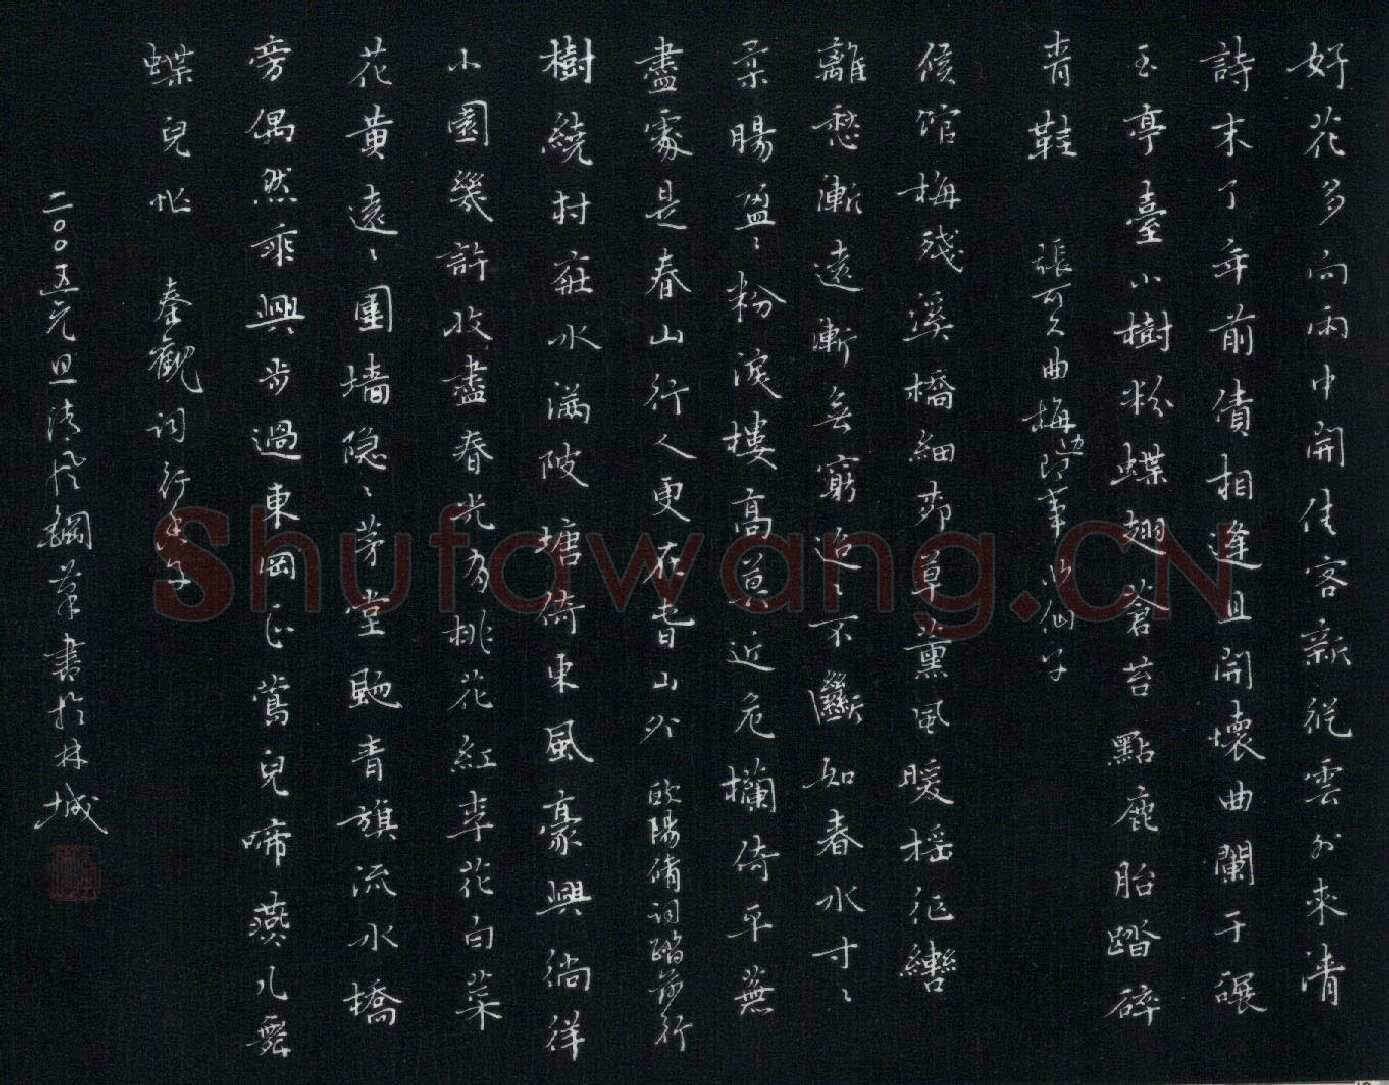 好花多向雨中開佳客新從雲外來清
詩未了年前債相逢且開懷曲闌干碾
玉亭臺小樹粉蝶翅蒼苔點鹿胎踏碎
青鞋 張可久曲梅邊即事水仙子
候馆梅殘溪橋細柳草薰風暖摇征轡
離愁漸遠漸無窮迢〻不斷如春水寸〻
柔腸盈〻粉淚樓高莫近危欄倚平蕪
盡處是春山行人更在春山外 歐陽脩詞踏莎行
樹繞村莊水滿陂塘倚東風豪興徜徉
小園幾許收盡春光有桃花紅李花白菜
花黄遠〻圍墻隐〻茅堂颺青旗流水橋
旁偶然乘興步過東岡正鶯兒啼燕兒舞
蝶兒忙 秦觀詞行香子
二〇〇五元旦清風鋼筆書於林城
Shufawang.CN